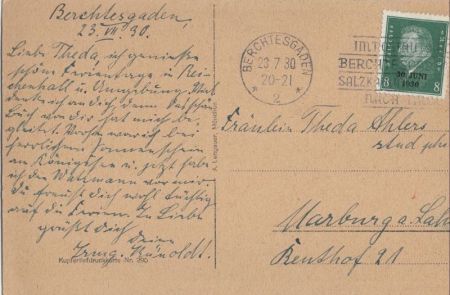 Berchtesgaden,
23. VII. 30.
Liebe Theda, ich genieße
schöne Ferientage in Rei-
chenhall u. Umgebung. Viel
denke ich an Dich, denn
Buch von dir hat mich be-
gleitet. Vorhin war ich bei
herrlichem Sonnenschein
am Königssee u. jetzt habe
ich den Watzmann vor mir.
Du freust dich wohl tüchtig
auf die Ferien. In Liebe
grüßt Dich
deine
Irmg. Künoldt.
Kupfertiefdruckkarte Nr. 290
BERCHTESGADEN
23 7 30
20-21
* 2 *
BERCHTESGADEN
SALZ
NACH
30. JUNI
1930
8 8
Fräulein Theda Ahlers
stud. phil.
Marburg a. Lahn
Renthof 21